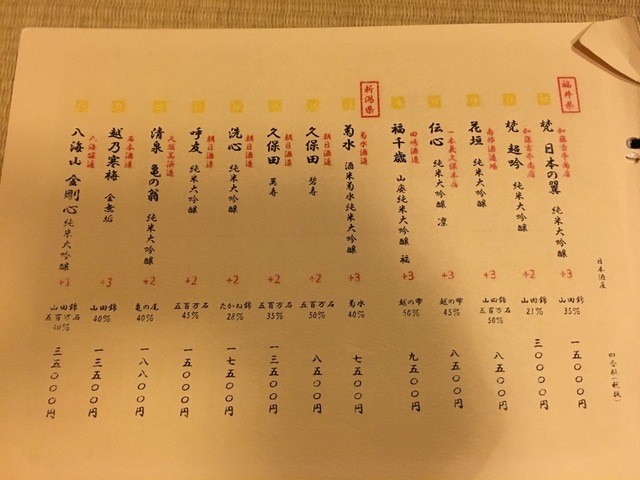 日本酒座
四合瓶(一枚板)
福井県
加藤吉平商店
梵 日本の翼 純米大吟醸
+3
山田錦
35%
一五〇〇〇円
加藤吉平商店
梵 超吟 純米大吟醸
+2
山田錦
21%
三〇〇〇〇円
南部酒造場
花垣 純米大吟醸
+3
山田錦
五百万石
50%
八五〇〇円
一本義久保本店
伝心 純米大吟醸 凛
+3
越の雫
45%
八五〇〇円
田嶋酒造
福千歳 山廃純米大吟醸 福
+3
越の雫
50%
九五〇〇円
新潟県
菊水酒造
菊水 酒米菊水純米大吟醸
+3
菊水
40%
七五〇〇円
朝日酒造
久保田 碧寿
+2
五百万石
50%
八五〇〇円
朝日酒造
久保田 萬寿
+2
五百万石
35%
一三五〇〇円
朝日酒造
洗心 純米大吟醸
+2
たかね錦
28%
一七五〇〇円
朝日酒造
呼友 純米大吟醸
+2
五百万石
45%
一五〇〇〇円
久須美酒造
清泉 亀の翁 純米大吟醸
+2
亀の尾
40%
一八八〇〇円
石本酒造
越乃寒梅 金無垢
+3
山田錦
40%
一三五〇〇円
八海醸造
八海山 金剛心 純米大吟醸
+1
山田錦
五百万石
40%
三五〇〇〇円